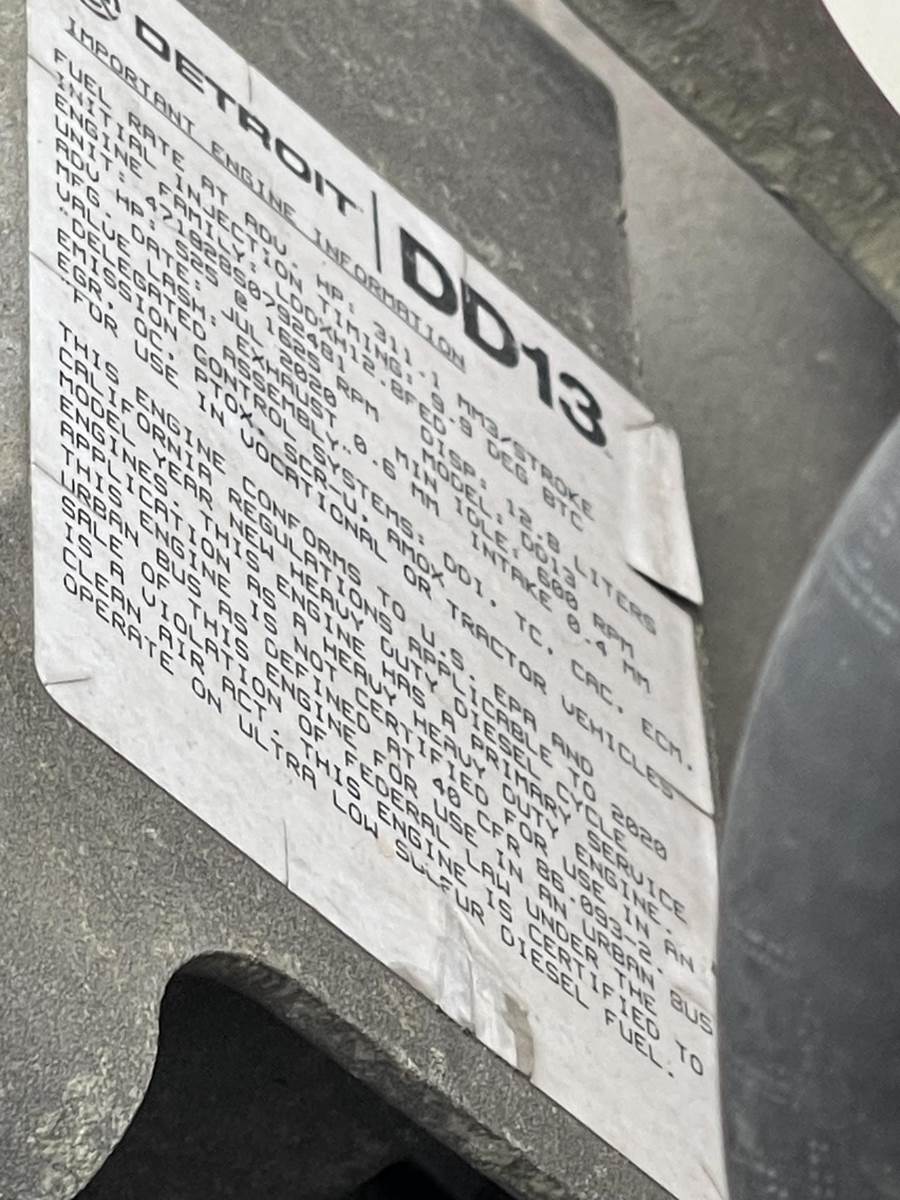 DETROIT | DD13
IMPORTANT ENGINE INFORMATION
FUEL RATE AT ADV. HP: 311.1 MM3/STROKE
INITIAL INJECTION TIMING: 9.9 DEG BTC
ENGINE FAMILY: LDDXH12.8FED DISP: 12.8 LITERS
UNIT: 471928S0792481 MODEL: DD13
ADV HP: 525 @ 1625 RPM MIN IDLE: 600 RPM
MFG. DATE: JUL 2020
VALVE LASH: EXHAUST 0.6 MM INTAKE 0.4 MM
"DELEGATED ASSEMBLY"
EMISSION CONTROL SYSTEMS: DDI, TC, CAC, ECM,
EGR, OC, PTOX, SCR-U, AMOX
"FOR USE IN VOCATIONAL OR TRACTOR VEHICLES"
THIS ENGINE CONFORMS TO U.S. EPA AND
CALIFORNIA REGULATIONS APPLICABLE TO 2020
MODEL YEAR NEW HEAVY DUTY DIESEL CYCLE
ENGINES. THIS ENGINE HAS A PRIMARY SERVICE
APPLICATION AS A HEAVY HEAVY DUTY ENGINE.
THIS ENGINE IS NOT CERTIFIED FOR USE IN AN
URBAN BUS AS DEFINED AT 40 CFR 86.093-2.
SALE OF THIS ENGINE FOR USE IN AN URBAN BUS
IS A VIOLATION OF FEDERAL LAW UNDER THE
CLEAN AIR ACT. THIS ENGINE IS CERTIFIED TO
OPERATE ON ULTRA LOW SULFUR DIESEL FUEL.